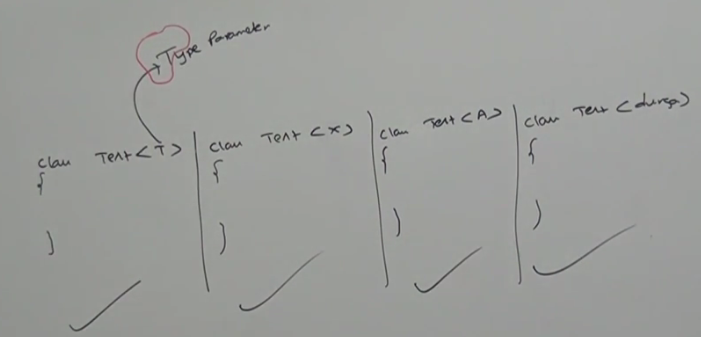 Type Parameter
class Test<T>
{
}
class Test<X>
{
}
class Test<A>
{
}
class Test<durga>
{
}